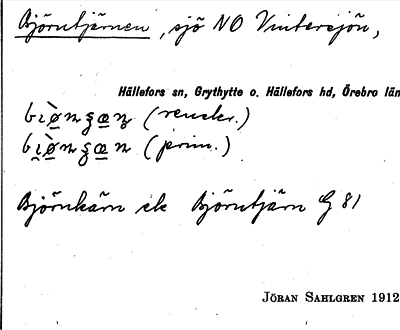 Björntjärnen, sjö NO Vintersjön,
Hällefors sn, Grythytte o. Hällefors hd, Örebro län
(renskr.)
(prim.)
Björnkärn elr Björntjärn G 81
JÖRAN SAHLGREN 1912